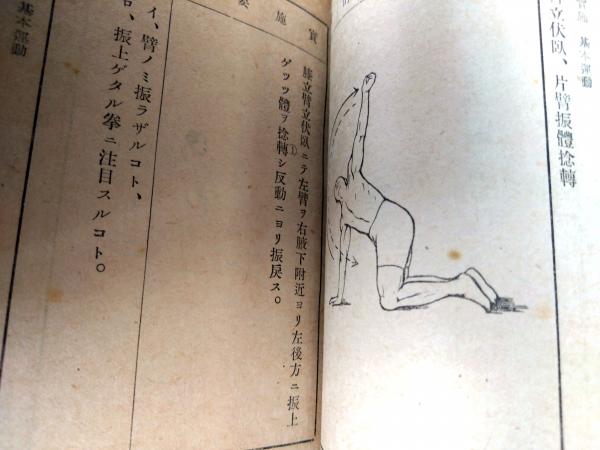 基本運動
臂立伏臥、片臂振體捻轉
實施
膝立臂立伏臥ニテ左臂ヲ右腋下附近ヨリ左後方ニ振上
ゲツツ體ヲ捻轉シ反動ニヨリ振戻ス。
イ、臂ノミ振ラザルコト、
ロ、振上ゲタル拳ニ注目スルコト。
基本運動